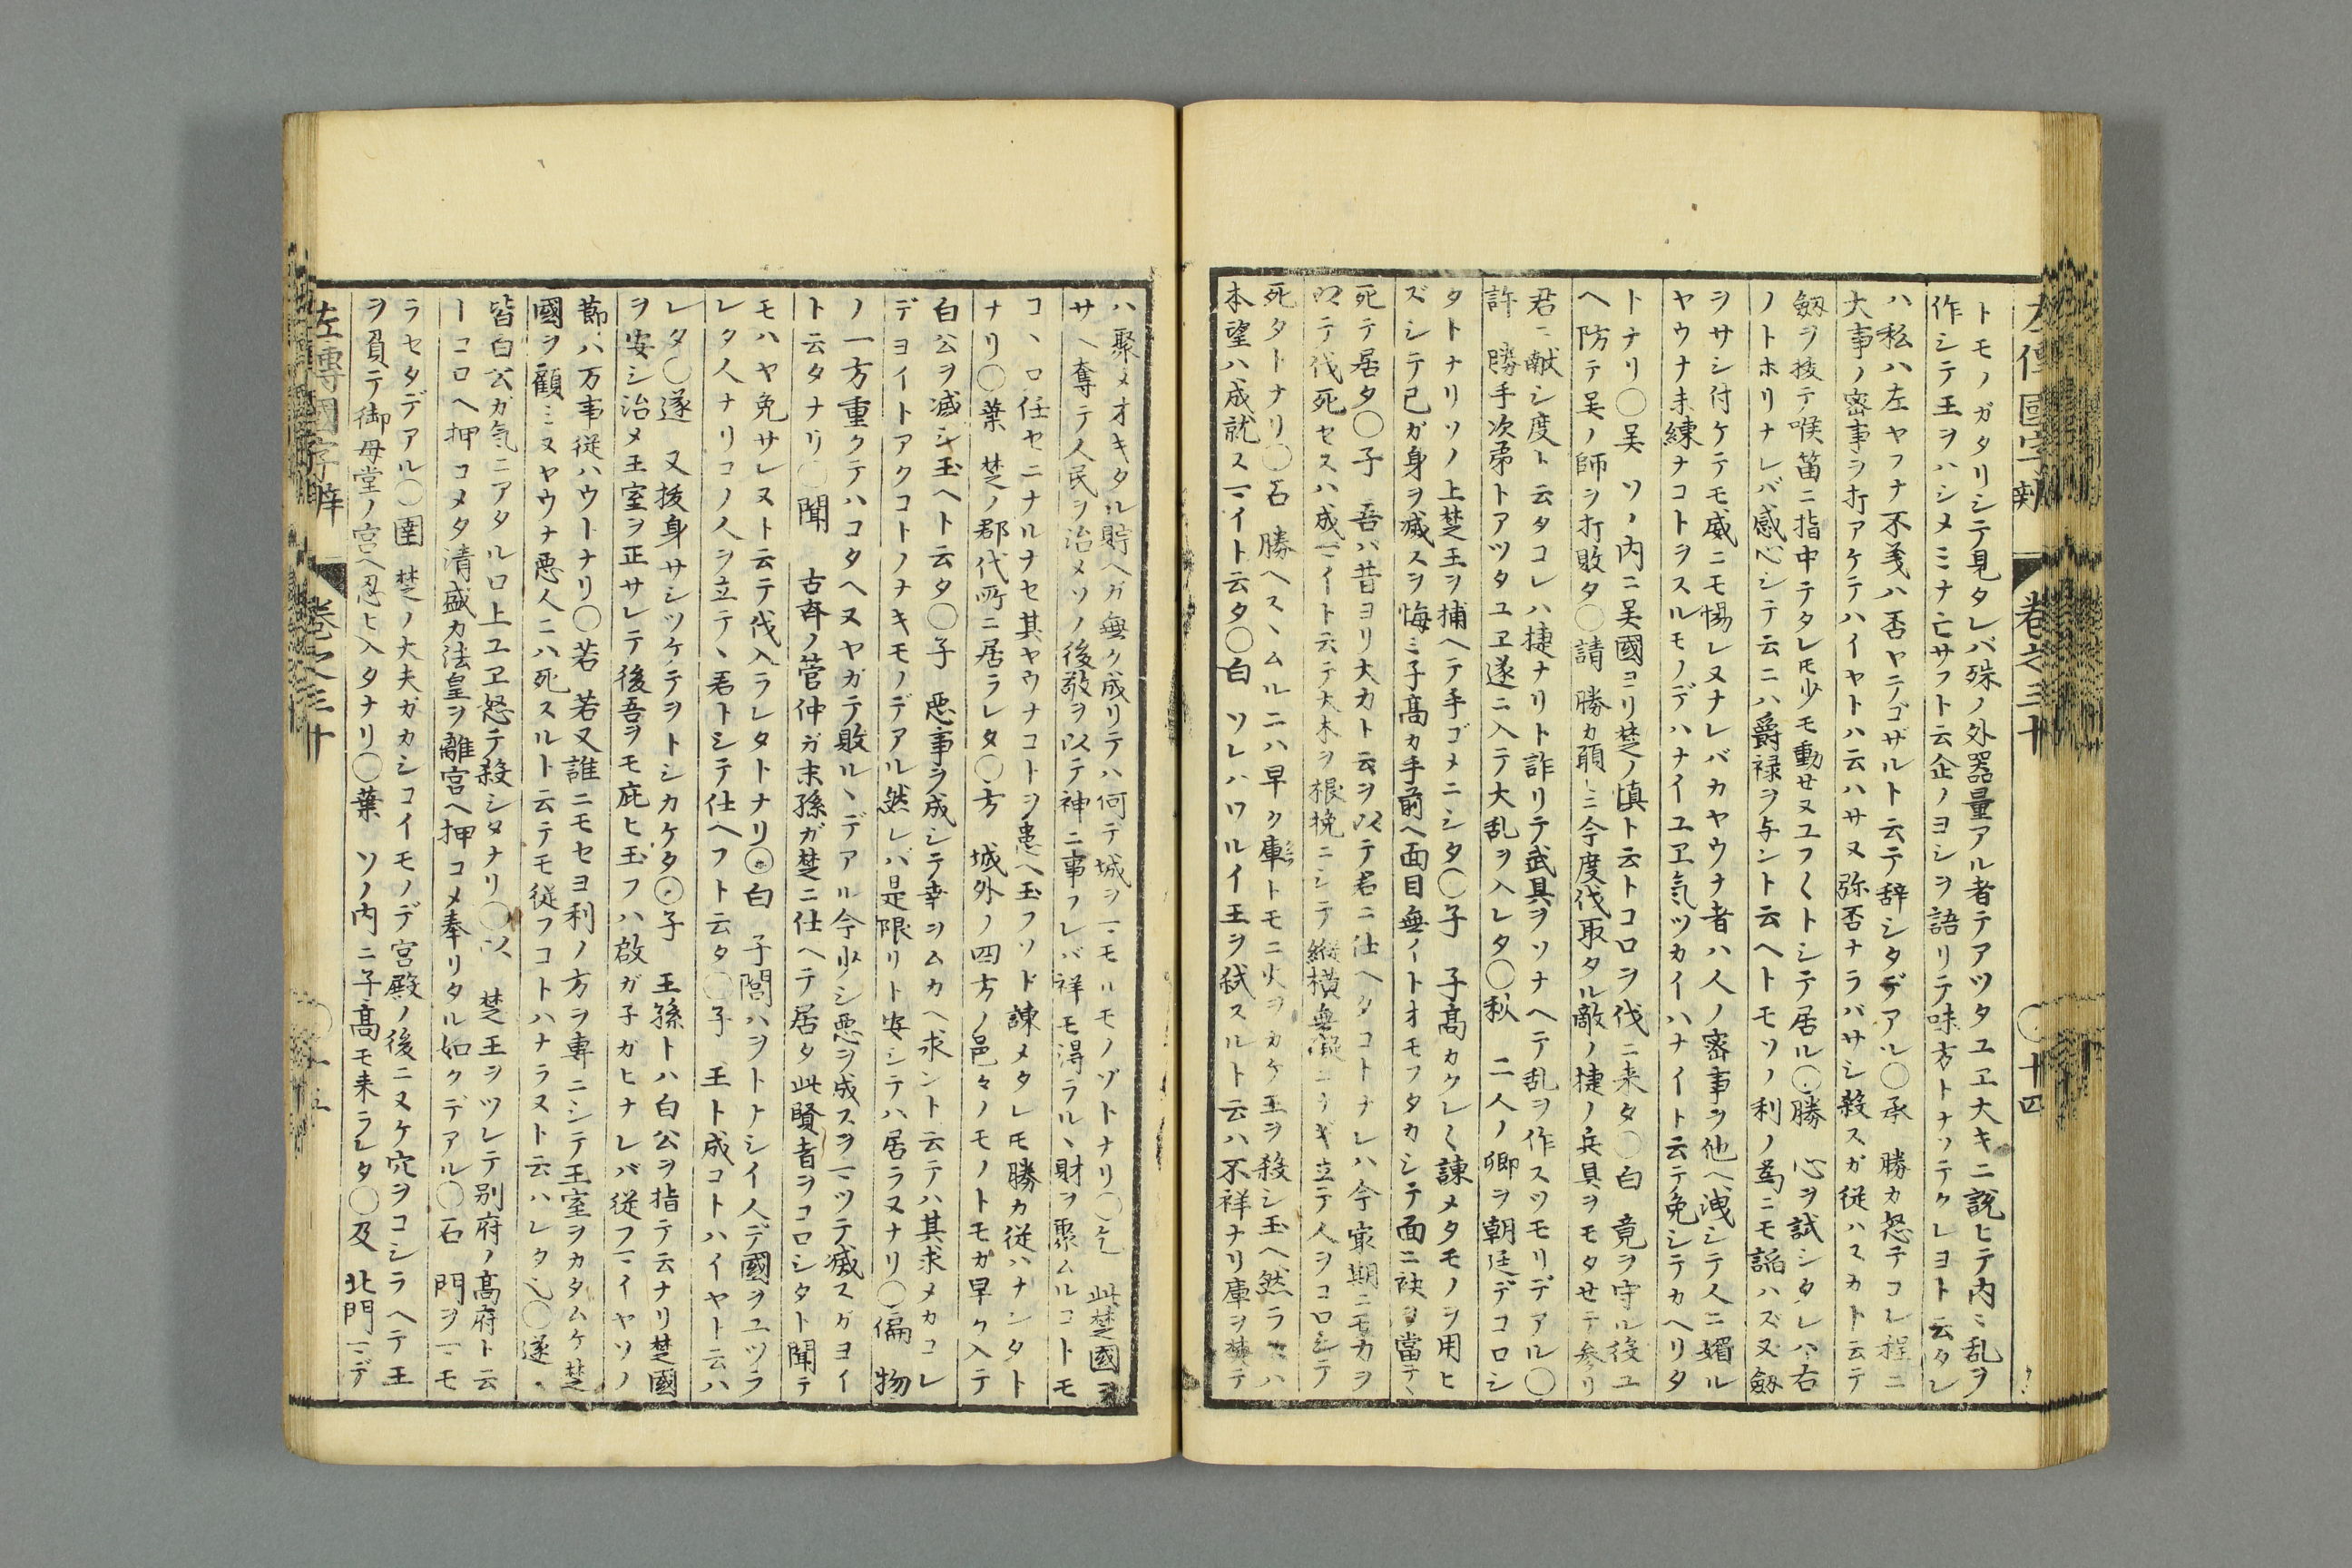 左傳國字辯 卷之三十 〇十四
トモノガタリシテ見タレバ殊ノ外器量アル者テアツタユヱ大キニ説ヒテ内ニ乱ヲ
作シテ王ヲハシメミナ亡サフト云企ノヨシヲ語リテ味方トナツテクレヨト云タレ
ハ私ハ左ヤフナ不義ハ否ヤテゴザルト云テ辞シタデアル〇承 勝カ怒テコレ程ニ
大事ノ密事ヲ打アケテハイヤトハ云ハサヌ弥否ナラバサシ殺スガ従ハヌカト云テ
劔ヲ抜テ喉笛ニ指中テタレ𪜈少モ動セヌユフ〱トシテ居ル〇勝 心ヲ試シタレハ右
ノトホリナレバ感心シテ云ニハ爵禄ヲ与ント云ヘトモソノ利ノ為ニモ諂ハズ又劔
ヲサシ付ケテモ威ニモ惕レヌナレバカヤウナ者ハ人ノ密事ヲ他ヘ洩シテ人ニ媚ル
ヤウナ未練ナコトヲスルモノデハナイユヱ気ツカイハナイト云テ免シテカヘリタ
トナリ〇吴 ソノ内ニ吴國ヨリ楚ノ慎ト云トコロヲ伐ニ来タ〇白 竟ヲ守ル後ユ
ヘ防テ吴ノ師ヲ打敗タ〇請 勝カ願ニ今度伐取タル敵ノ捷ノ兵具ヲモタセテ参リ
君ニ献シ度ト云タコレハ捷ナリト詐リテ武具ヲソナヘテ乱ヲ作スツモリデアル〇
許 勝手次第トアツタユヱ遂ニ入テ大乱ヲ入レタ〇秋 二人ノ卿ヲ朝廷デコロシ
タトナリソノ上楚王ヲ捕ヘテ手ゴメニシタ〇子 子髙カクレ〱諫メタモノヲ用ヒ
ズシテ己ガ身ヲ滅スヲ悔ミ子髙カ手前ヘ面目無イトオモフタカシテ面ニ袂ヲ當テヽ
死テ居タ〇子 吾ハ昔ヨリ大力ト云ヲ以テ君ニ仕ヘタコトナレハ今最期ニモ力ヲ
以テ伐死セスハ成𪜈イト云テ大木ヲ根挽ニシテ縦横無尽ニナギ立テ人ヲコロシテ
死タトナリ〇石 勝ヘスヽムルニハ早ク庫トモニ火ヲカケ王ヲ殺シ玉ヘ然ラスハ
本望ハ成就スマイト云タ〇白 ソレハワルイ王ヲ弑スルト云ハ不祥ナリ庫ヲ焚テ
ハ聚メオキタル貯ヘガ無ク成リテハ何デ城ヲマモルモノゾトナリ〇乞 此楚國ヲ
サヘ奪テ人民ヲ治メソノ後敬ヲ以テ神ニ事フレバ祥モ得ラルヽ財ヲ聚ムルコトモ
コヽロ任セニナルナセ其ヤウナコトヲ患ヘ玉フソド諌メタレ𪜈勝カ従ハナンタト
ナリ〇葉 楚ノ郡代所ニ居ラレタ〇方 城外ノ四方ノ邑々ノモノトモガ早ク入テ
白公ヲ滅シ玉ヘト云タ〇子 悪事ヲ成シテ幸ヲムカヘ求ント云テハ其求メカコレ
デヨイトアクコトノナキモノデアル然レバ是限リト安シテハ居ラヌナリ〇偏 物
ノ一方重クテハコタヘヌヤガテ敗ルヽデアル今少シ悪ヲ成スヲマツテ滅スガヨイ
ト云タナリ〇聞 古斉ノ管仲ガ末孫ガ楚ニ仕ヘテ居タ此賢者ヲコロシタト聞テ
モハヤ免サレヌト云テ伐入ラレタトナリ〇白 子閭ハヲトナシイ人デ國ヲユツラ
レタ人ナリコノ人ヲ立テヽ君トシテ仕ヘフト云タ〇子 王ト成コトハイヤト云ハ
レタ〇遂 又抜身サシツケテヲトシカケタ〇子 王孫トハ白公ヲ指テ云ナリ楚國
ヲ安シ治メ王室ヲ正サレテ後吾ヲモ庇ヒ玉フハ啟ガ子ガヒナレバ従フマイヤソノ
莭ハ万事従ハウトナリ〇若 若又誰ニモセヨ利ノ方ヲ專ニシテ王室ヲカタムケ楚
國ヲ顧ミヌヤウナ悪人ニハ死スルト云テモ従フコトハナラヌト云ハレタ〇遂
皆白公ガ気ニアタルロ上ユヱ怒テ殺シタナリ〇以 楚王ヲツレテ別府ノ髙府ト云
トコロヘ押コメタ清盛カ法皇ヲ離宮ヘ押コメ奉リタル如クデアル〇石 門ヲマモ
ラセタデアル〇圉 楚ノ大夫ガカシコイモノデ宮殿ノ後ニヌケ穴ヲコシラヘテ王
ヲ負テ御母堂ノ宮ヘ忍ヒ入タナリ〇葉 ソノ内ニ子髙モ来ラレタ〇及 北門マデ
左傳國字辯 卷之三十 〇十五